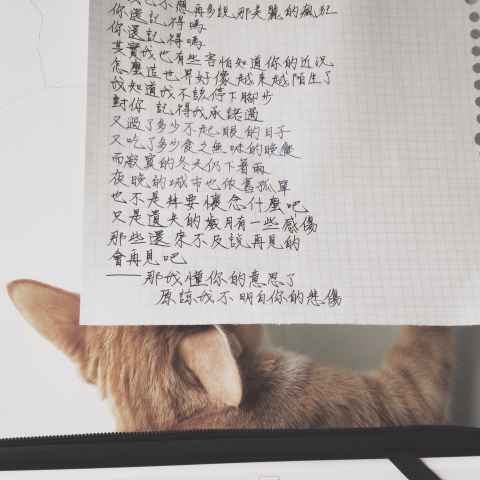 不想再多說那美麗的瘋狂
你還記得嗎
你還記得嗎
其實我也有些害怕知道你的近況
怎麼這世界好像越來越陌生了
我知道我不該停下腳步
對你 記得我承諾過
又過了多少不起眼的日子
又吃了多少食之無味的晚餐
而寂寞的冬天仍下著雨
夜晚的城市也依舊孤單
也不是非要懷念什麼吧
只是遺失的歲月有一些感傷
那些還來不及說再見的
會再見吧
——那我懂你的意思了
原諒我不明白你的悲傷